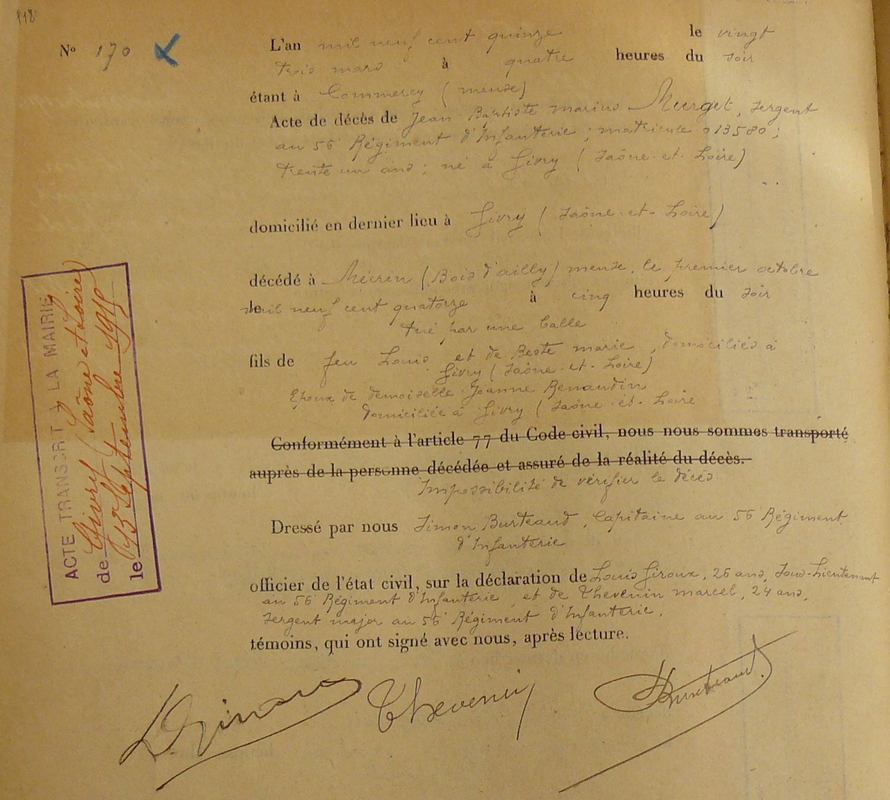 118
N° 170 L'an mil neuf cent quinze le vingt
trois mars à quatre heures du soir
étant à Commercy (meuse)
Acte de décès de Jean Baptiste marius Murget, sergent
au 56 Régiment d'Infanterie; matricule 013580;
trente un ans; né à Givry (Saône-et-Loire)
domicilié en dernier lieu à Givry (Saône-et-Loire)
décédé à Mécrin (Bois d'ailly) meuse, le premier octobre
le mil neuf cent quatorze à cinq heures du soir
tué par une balle
fils de feu Louis et de Beste marie, domiciliés à
Givry (Saône-et-Loire)
Epoux de demoiselle Jeanne Renaudin
domiciliée à Givry (Saône-et-Loire
Conformément à l'article 77 du Code civil, nous nous sommes transporté
auprès de la personne décédée et assuré de la réalité du décès.
Impossibilité de vérifier le décès
Dressé par nous Simon Burteaud, Capitaine au 56 Régiment
d'Infanterie
officier de l'état civil, sur la déclaration de Louis Giroux, 26 ans, Sous-Lieutenant
au 56 Régiment d'Infanterie, et de Thevenin marcel, 24 ans,
sergent major au 56 Régiment d'Infanterie,
témoins, qui ont signé avec nous, après lecture.
Thevenin Burteaud
ACTE TRANSCRIT À LA MAIRIE
de Givry (Saône et Loire)
le Septembre 1915